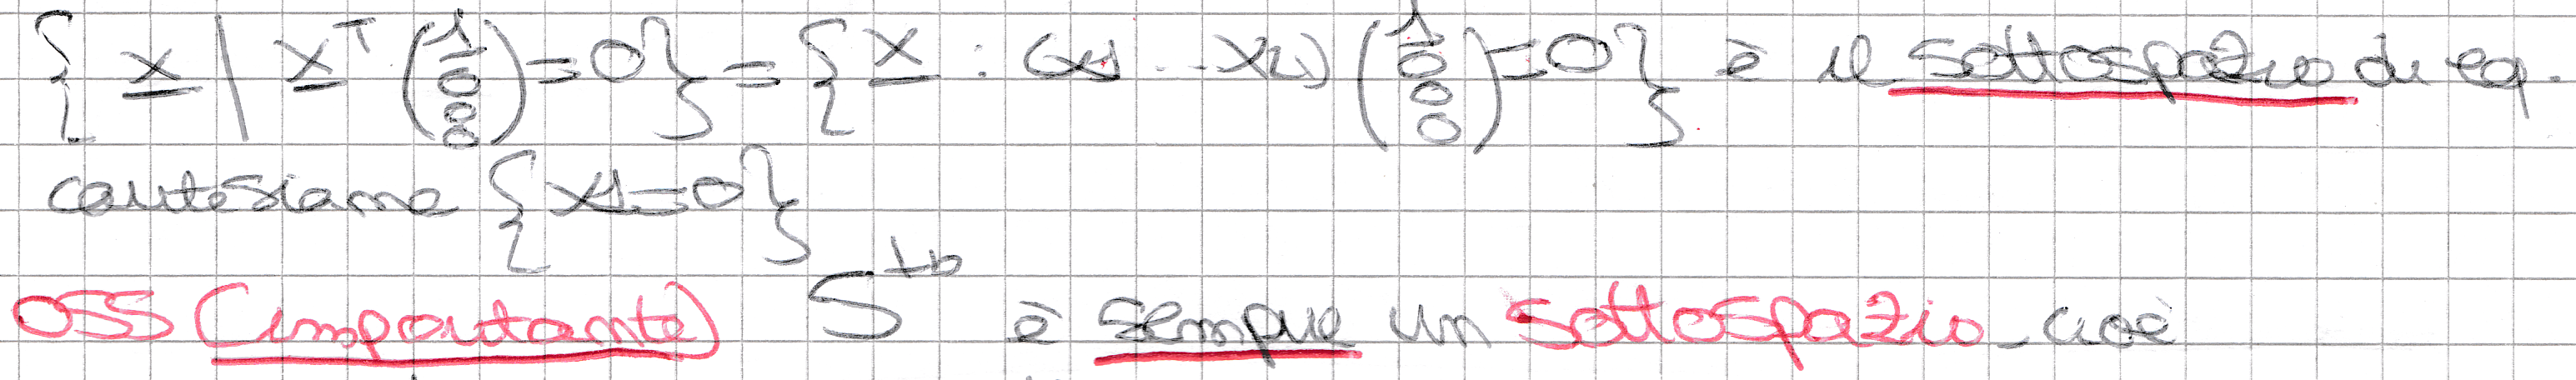 {x | xᵀ (1 0 0 0) = 0} = {x : (x1 ... x4) (1 0 0 0) = 0} è il sottospazio di eq.
cartesiana {x1 = 0}
OSS (importante) S^⊥b è sempre un sottospazio - cioè